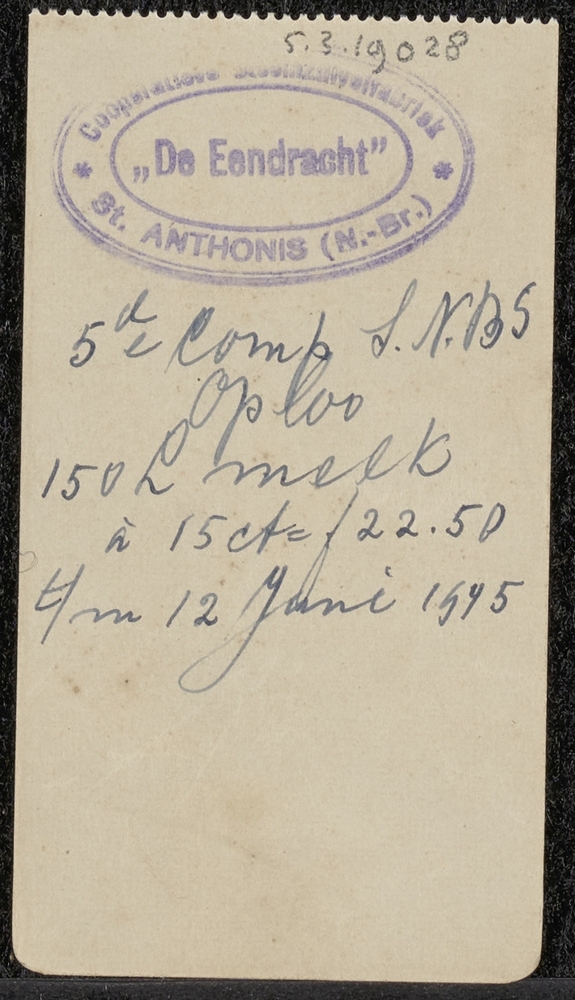 5.3.19028
Coöperatieve Stoomzuivelfabriek
„De Eendracht”
* St. ANTHONIS (N.-Br.) *
5de Comp S.N.BS
Oploo
150 L melk
à 15 ct = f 22.50
t/m 12 Juni 1945